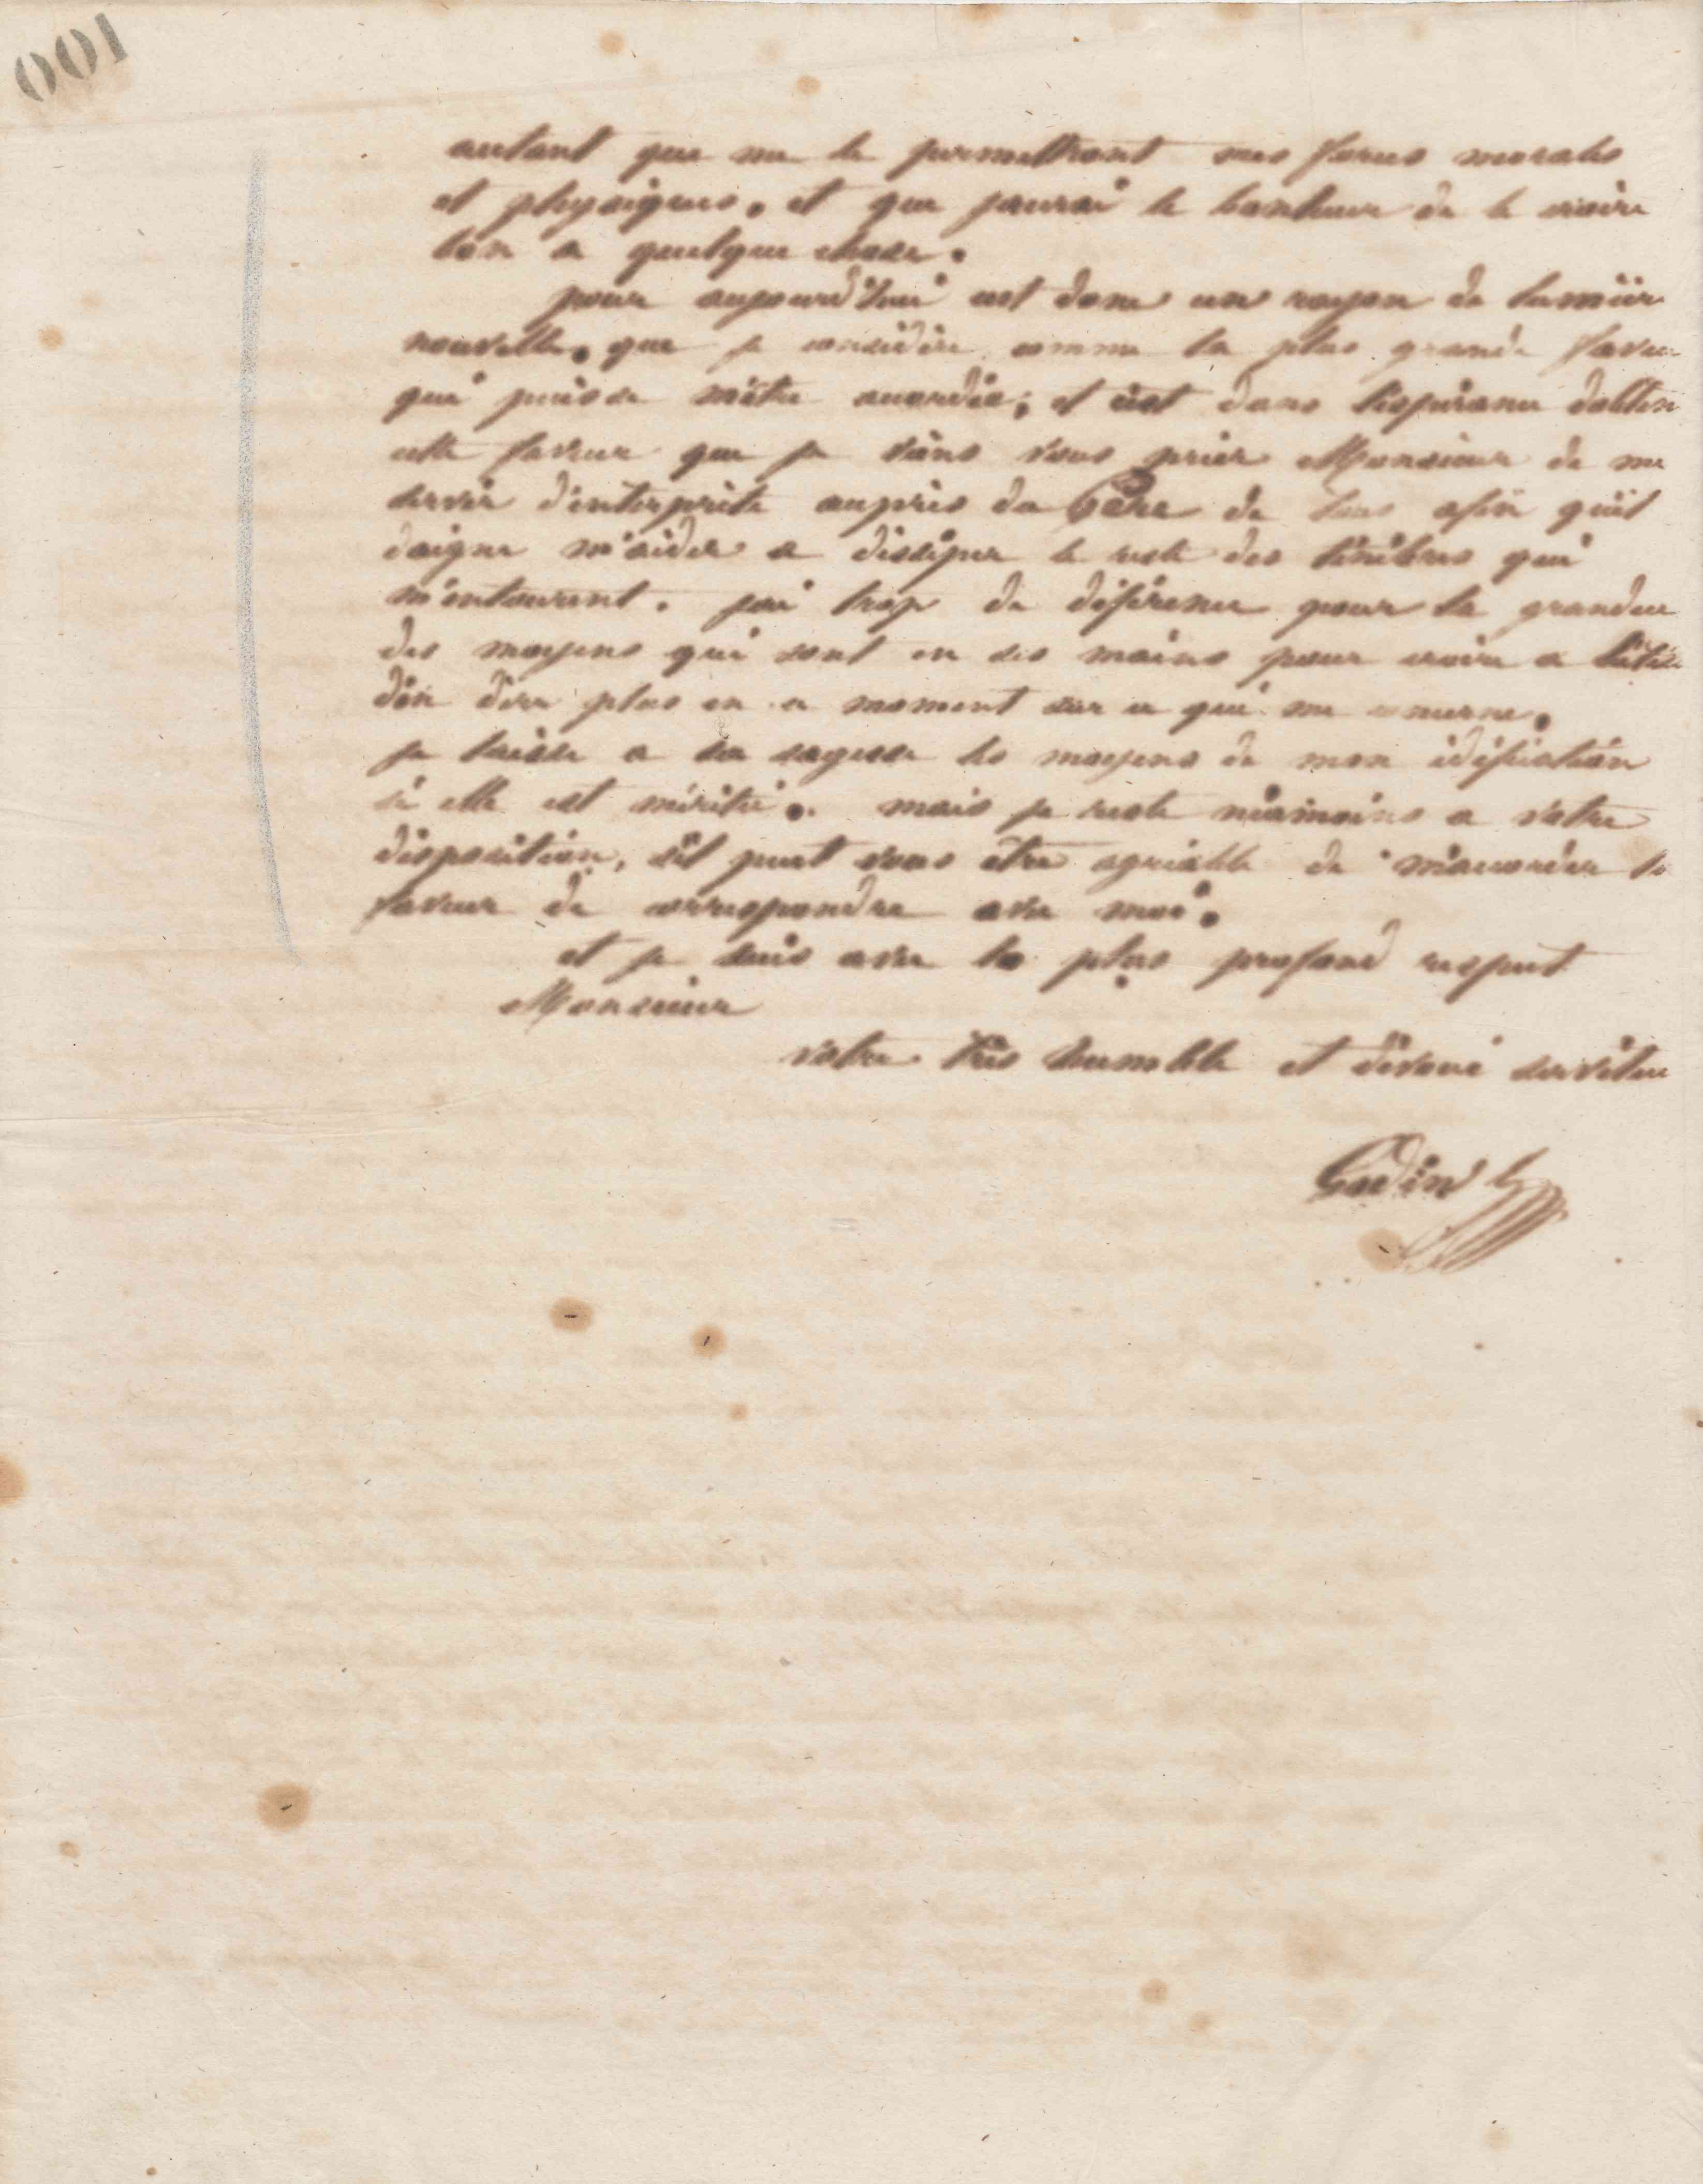 001
autant que me le permettront mes forces morales
et physiques, et que jaurai le bonheur de le croire
bon a quelque chose.
pour aujourd'hui cest donc un rayon de lumière
nouvelle, que je considère comme la plus grande faveur
qui puisse mêtre accordée; et cest dans lespérance dobtenir
cette faveur que je viens vous prier Monsieur de me
servir d'interprète auprès du Père de tous afin quil
daigne m'aider a dissiper le reste des ténèbres qui
m'entourent. jai trop de déférence pour la grandeur
des moyens qui sont en ses mains pour croire a
den dire plus en ce moment sur ce qui me concerne.
je laisse a sa sagesse les moyens de mon édification
si elle est méritée. mais je reste néamoins a votre
disposition, sil peut vous être agréable de m'accorder la
faveur de correspondre avec moi.
et je suis avec le plus profond respect
Monsieur
votre très humble et dévoué serviteur
Godin